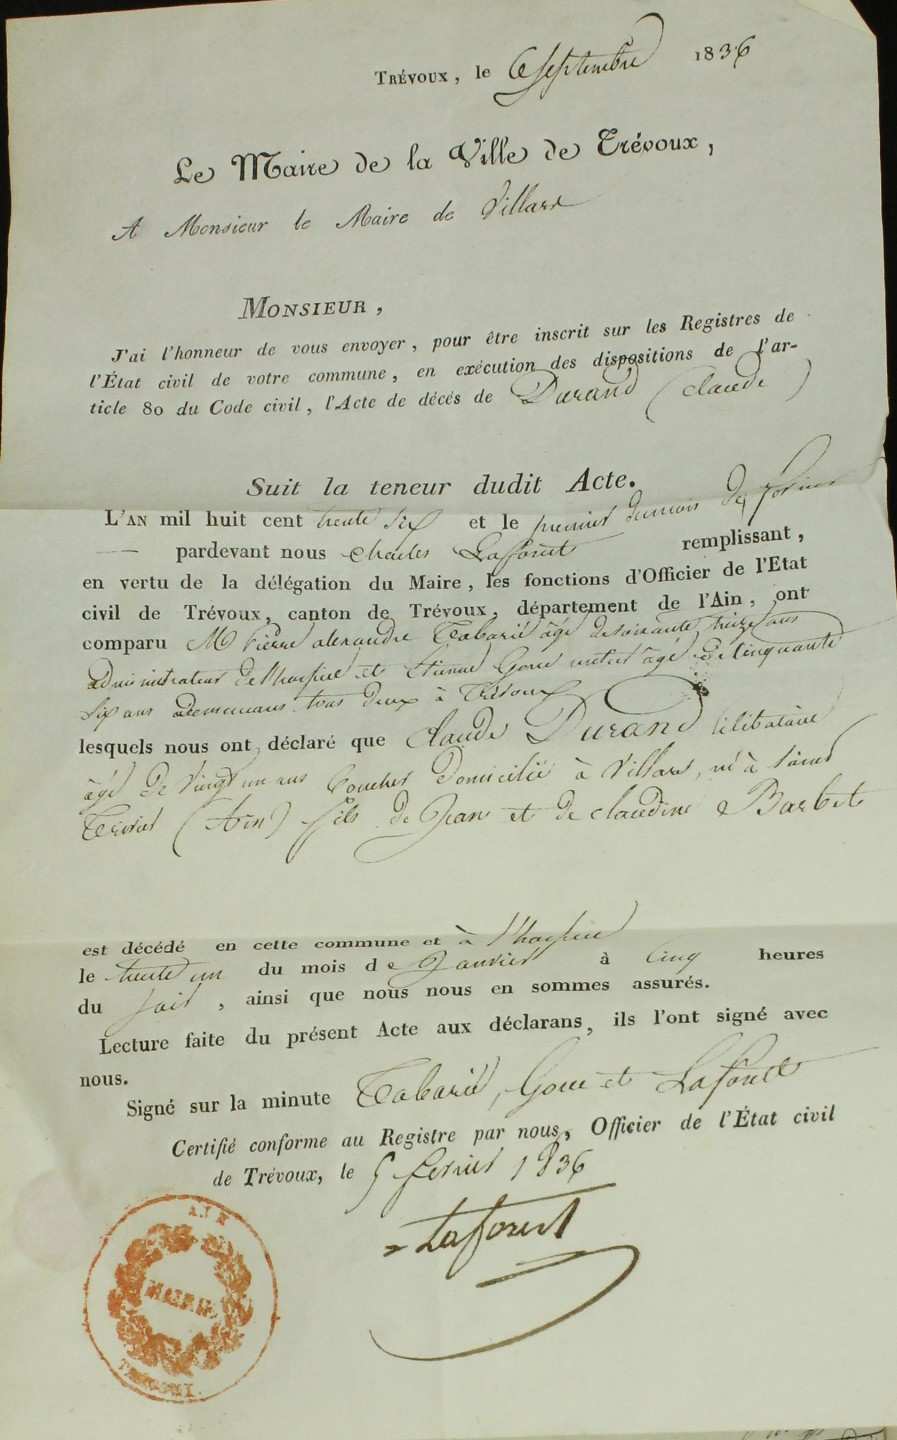 TRÉVOUX, le 6 septembre 1836
Le Maire de la Ville de Trévoux,
A Monsieur le Maire de Villars
MONSIEUR,
J'ai l'honneur de vous envoyer, pour être inscrit sur les Registres de
l'État civil de votre commune, en exécution des dispositions de l'ar-
ticle 80 du Code civil, l'Acte de décès de Durand (Claude)
Suit la teneur dudit Acte.
L'AN mil huit cent trente six et le premier du mois de février
pardevant nous Charles Laforest remplissant,
en vertu de la délégation du Maire, les fonctions d'Officier de l'Etat
civil de Trévoux, canton de Trévoux, département de l'Ain, ont
comparu M Pierre alexandre Tabarié âgé de soixante treize ans
administrateur de l'hospice et Etienne âgé de Cinquante
Six ans demeurans tous deux à Trévoux
lesquels nous ont déclaré que Claude Durand célibataire
âgé de vingt un ans domicilié à Villars, né à
(Ain) fils de Jean et de Claudine Barbet
est décédé en cette commune et à l'hospice
le trente un du mois de Janvier à Cinq heures
du soir, ainsi que nous nous en sommes assurés.
Lecture faite du présent Acte aux déclarans, ils l'ont signé avec
nous.
Signé sur la minute Tabarié, et Laforest
Certifié conforme au Registre par nous, Officier de l'État civil
de Trévoux, le 5 février 1836
Laforest
AIN
MAIRIE
TREVOUX